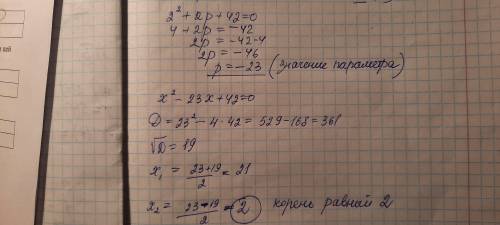 2² + 2p + 42 = 0
4 + 2p = -42
2p = -42-4
2p = -46
p = -23 (значение параметра)
x² - 23x + 42 = 0
D = 23² - 4·42 = 529 - 168 = 361
√D = 19
x₁ = (23+19)/2 = 21
x₂ = (23-19)/2 = 2 корень равный 2